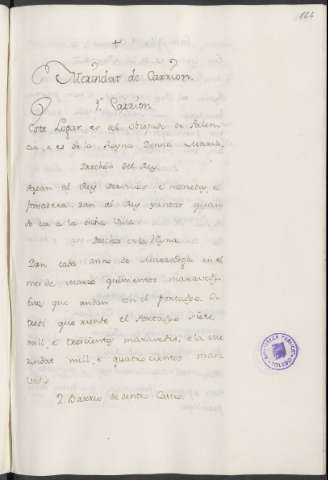 164
+
Merindat de Carrion.
1.º Carrion
Este Lugar es del Obispado de Palen
cia, e es de la Reyna Donna Maria,
Derechos del Rey
Ayan al Rey servicios e monedas e
fonsadera. Dan al Rey yantar quan
do va a la dicha Villa
Derechos de la Reyna
Dan cada anno de Martiniega en el
mes de Marzo quinientos maravedis
que andan en el portazgo
que rinde el Portazgo siete
mill e trescientos maravedis, e la me
rindat mill e quatrocientos mara
vedis
2. Barrio de